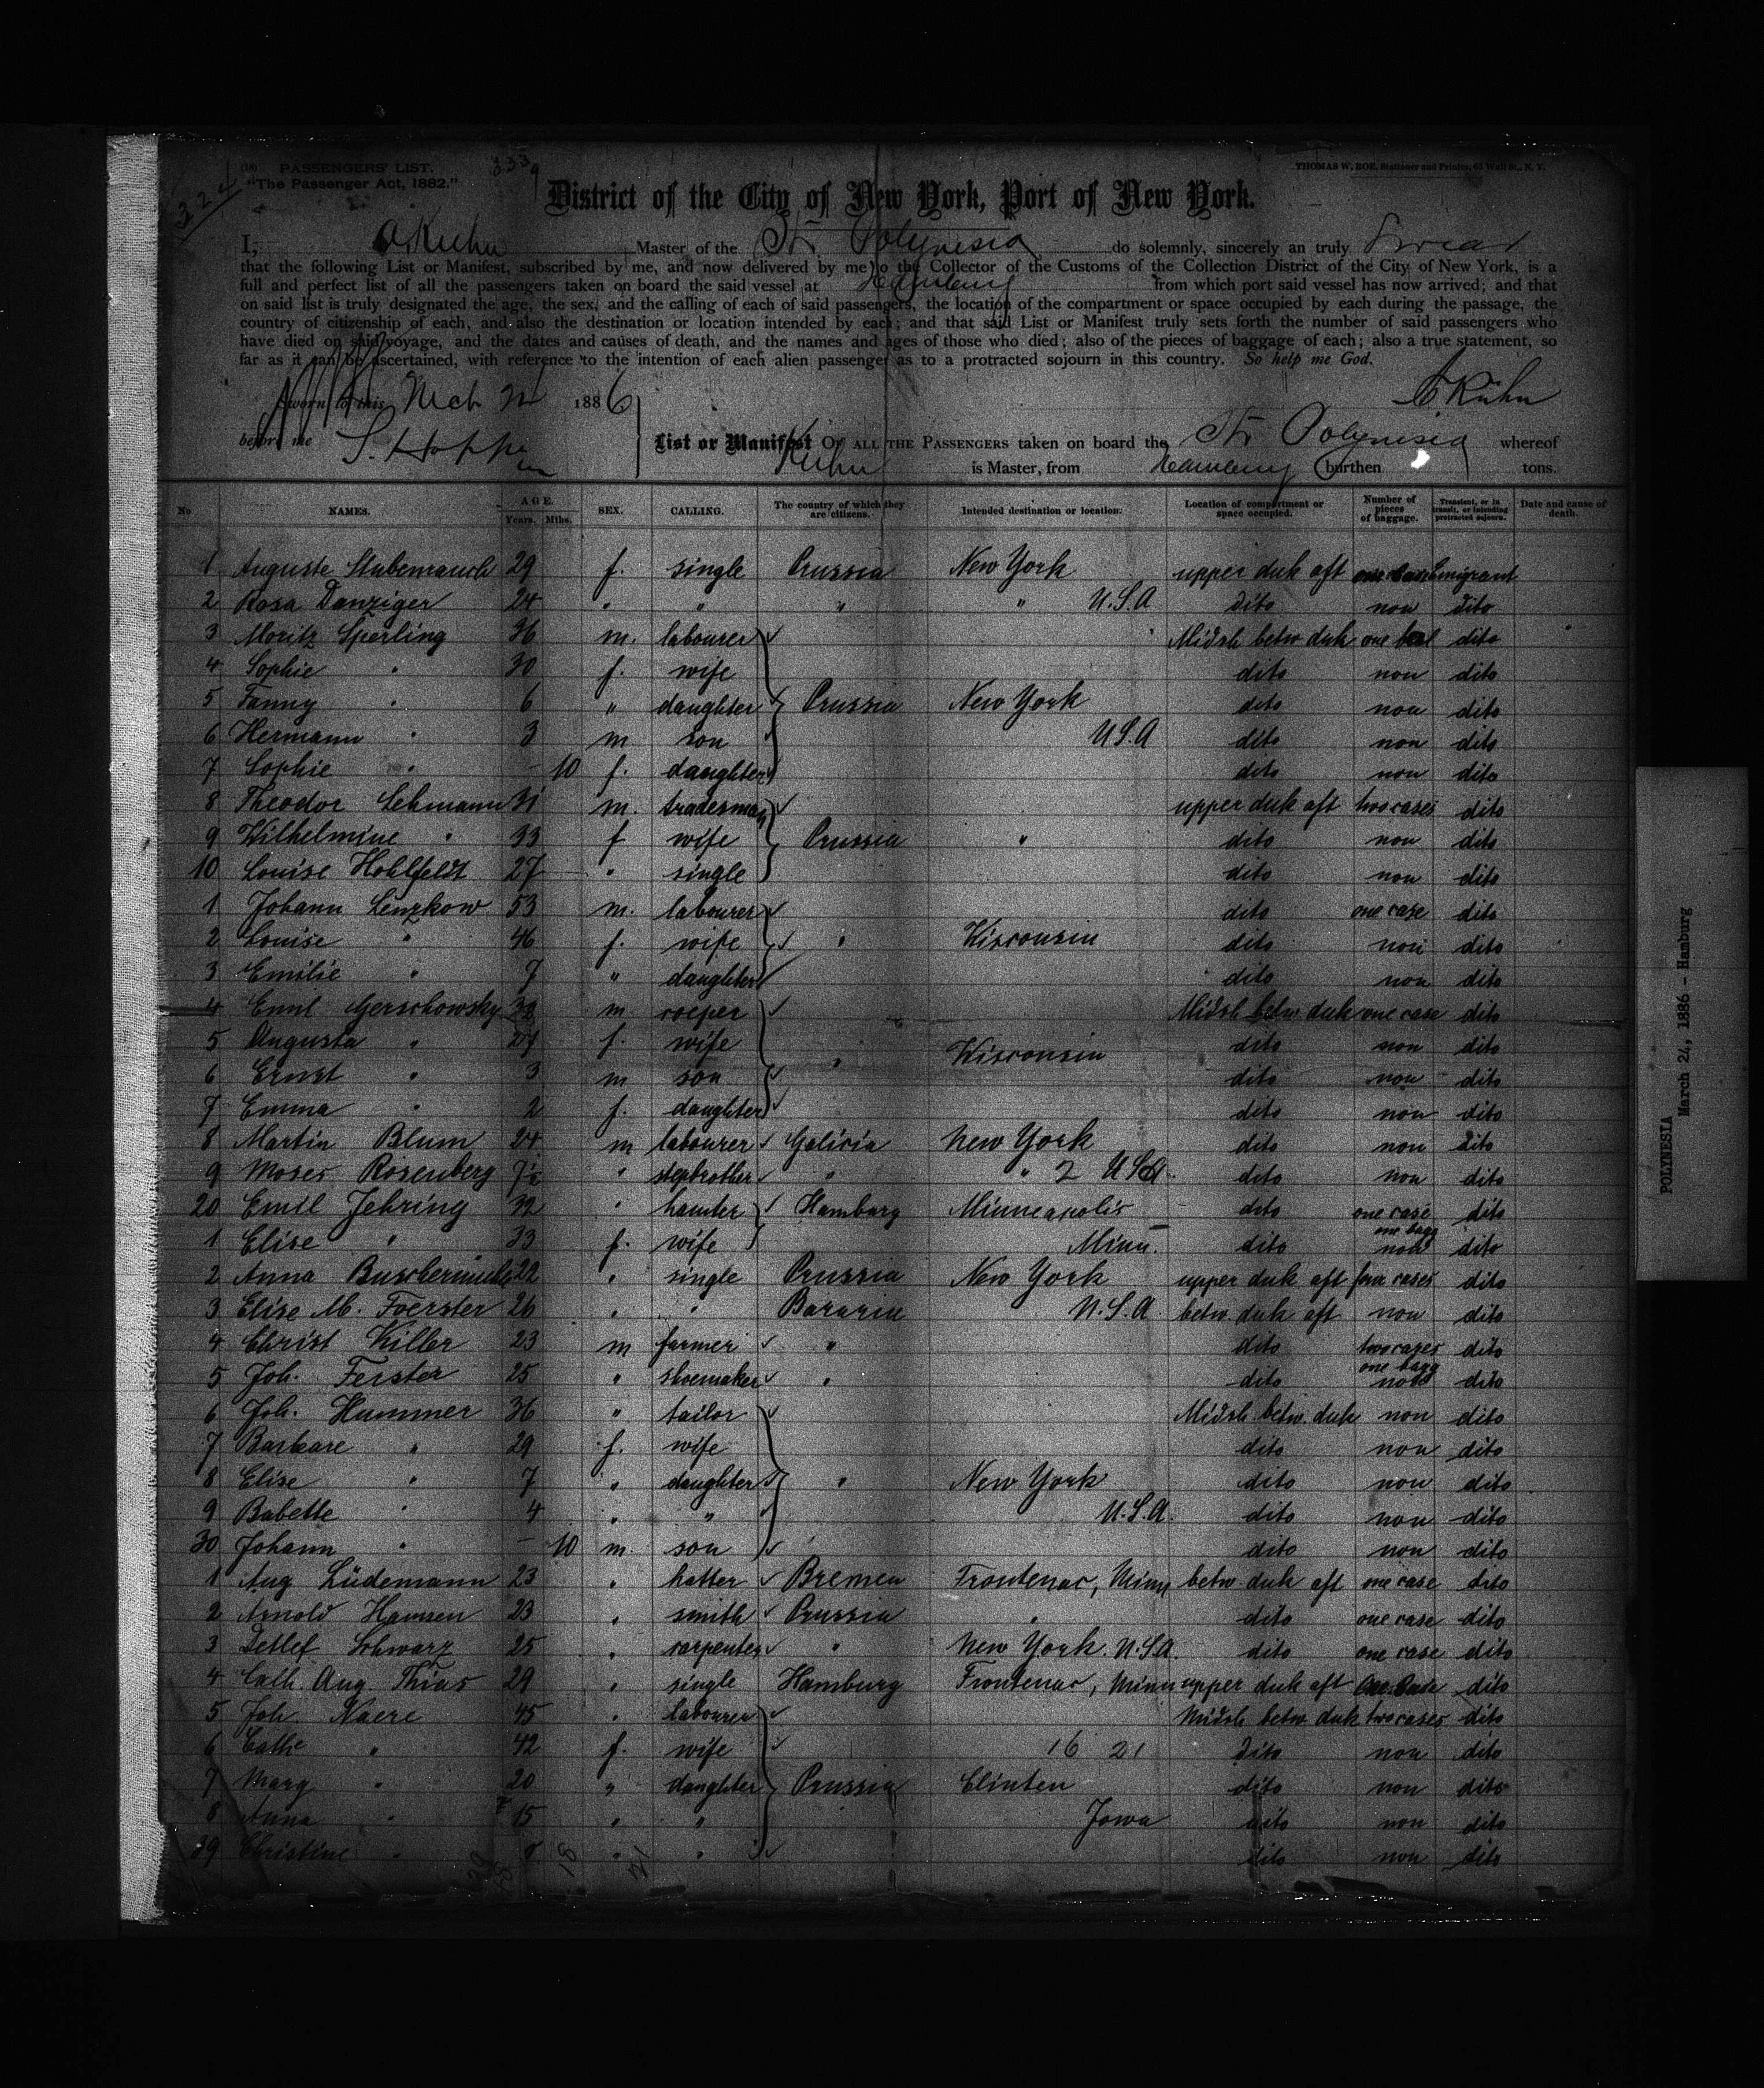 (18) PASSENGERS' LIST.
"The Passenger Act, 1882."
324
THOMAS W. ROE, Stationer and Printer, 63 Wall St., N. Y.
District of the City of New York, Port of New York.
I, A Kuhn Master of the Str Polynesia do solemnly, sincerely an truly swear
that the following List or Manifest, subscribed by me, and now delivered by me to the Collector of the Customs of the Collection District of the City of New York, is a
full and perfect list of all the passengers taken on board the said vessel at Hamburg from which port said vessel has now arrived; and that
on said list is truly designated the age, the sex, and the calling of each of said passengers, the location of the compartment or space occupied by each during the passage, the
country of citizenship of each, and also the destination or location intended by each; and that said List or Manifest truly sets forth the number of said passengers who
have died on said voyage, and the dates and causes of death, and the names and ages of those who died; also of the pieces of baggage of each; also a true statement, so
far as it can be ascertained, with reference to the intention of each alien passenger as to a protracted sojourn in this country. So help me God.
Sworn to this Mch 24 1886 Kühn
before me List or Manifest OF ALL THE PASSENGERS taken on board the Str Polynesia whereof
Kuhn is Master, from Hamburg burthen tons.
No NAMES. AGE. Years. Mths. SEX. CALLING. The country of which they are citizens. Intended destination or location. Location of compartment or space occupied. Number of pieces of baggage. Transient, or in transit, or intending protracted sojourn. Date and cause of death.
1 Auguste Stubenrauch 29 f. single Prussia New York upper deck aft emigrant
2 Rosa Danziger 24 " " " " U.S.A dito non dito
3 Moritz Sperling 36 m. labourer Midsh betw deck one dito
4 Sophie " 30 f. wife dito non dito
5 Fanny " 6 " daughter Prussia New York dito non dito
6 Hermann " 3 m son U.S.A dito non dito
7 Sophie " - 10 f. daughter dito non dito
8 Theodor Lehmann 31 m. tradesman upper deck aft two cases dito
9 Wilhelmine " 33 f wife Prussia " dito non dito
10 Louise Hohlfeldt 27 " single dito non dito
1 Johann Lenzkow 53 m. labourer dito one case dito
2 Louise " 46 f. wife " Wisconsin dito non dito
3 Emilie " 7 " daughter dito non dito
4 Emil Gerschowsky m coeper Midsh betw. deck one case dito
5 Augusta " 27 f. wife " Wisconsin dito non dito
6 Ernst " 3 m son dito non dito
7 Emma " 2 f. daughter dito non dito
8 Martin Blum 24 m labourer Galicia New York dito non dito
9 Moses Rosenberg " stepbrother " " 2 USA. dito non dito
20 Emil Jehring 32 " Hamburg Minneapolis dito one case dito
1 Elise " 33 f. wife Minn. dito one bagg non dito
2 Anna 22 " single Prussia New York upper deck aft four cases dito
3 Elise M. Foerster 26 " " Bavaria U.S.A. betw. deck aft non dito
4 Christ Killer 23 m farmer " dito two cases dito
5 Joh. Ferster 25 " shoemaker " dito one bagg non dito
6 Joh. Hummer 36 " tailor Midsh betw. deck non dito
7 Barbare " 29 f. wife dito non dito
8 Elise " 7 " daughter " New York dito non dito
9 Babette " 4 " " U.S.A. dito non dito
30 Johann " - 10 m. son dito non dito
1 Aug Lüdemann 23 " hatter Bremen Frontenac, Minn betw. deck aft one case dito
2 Arnold Hamsen 23 " smith Prussia " dito one case dito
3 Detlef Schwarz 25 " carpenter " New York. U.S.A. dito one case dito
4 Cath. Aug. Thias 29 " single Hamburg Frontenac, Minn upper deck aft dito
5 Joh Naere 45 " labourer Midsh betw deck two cases dito
6 Cathe " 42 f. wife 16 21 dito non dito
7 Marg " 20 " daughter Prussia Clinten dito non dito
8 Anna " 15 " " Jowa dito non dito
39 Christine " 8 " " dito non dito
POLYNESIA
March 24, 1886 - Hamburg